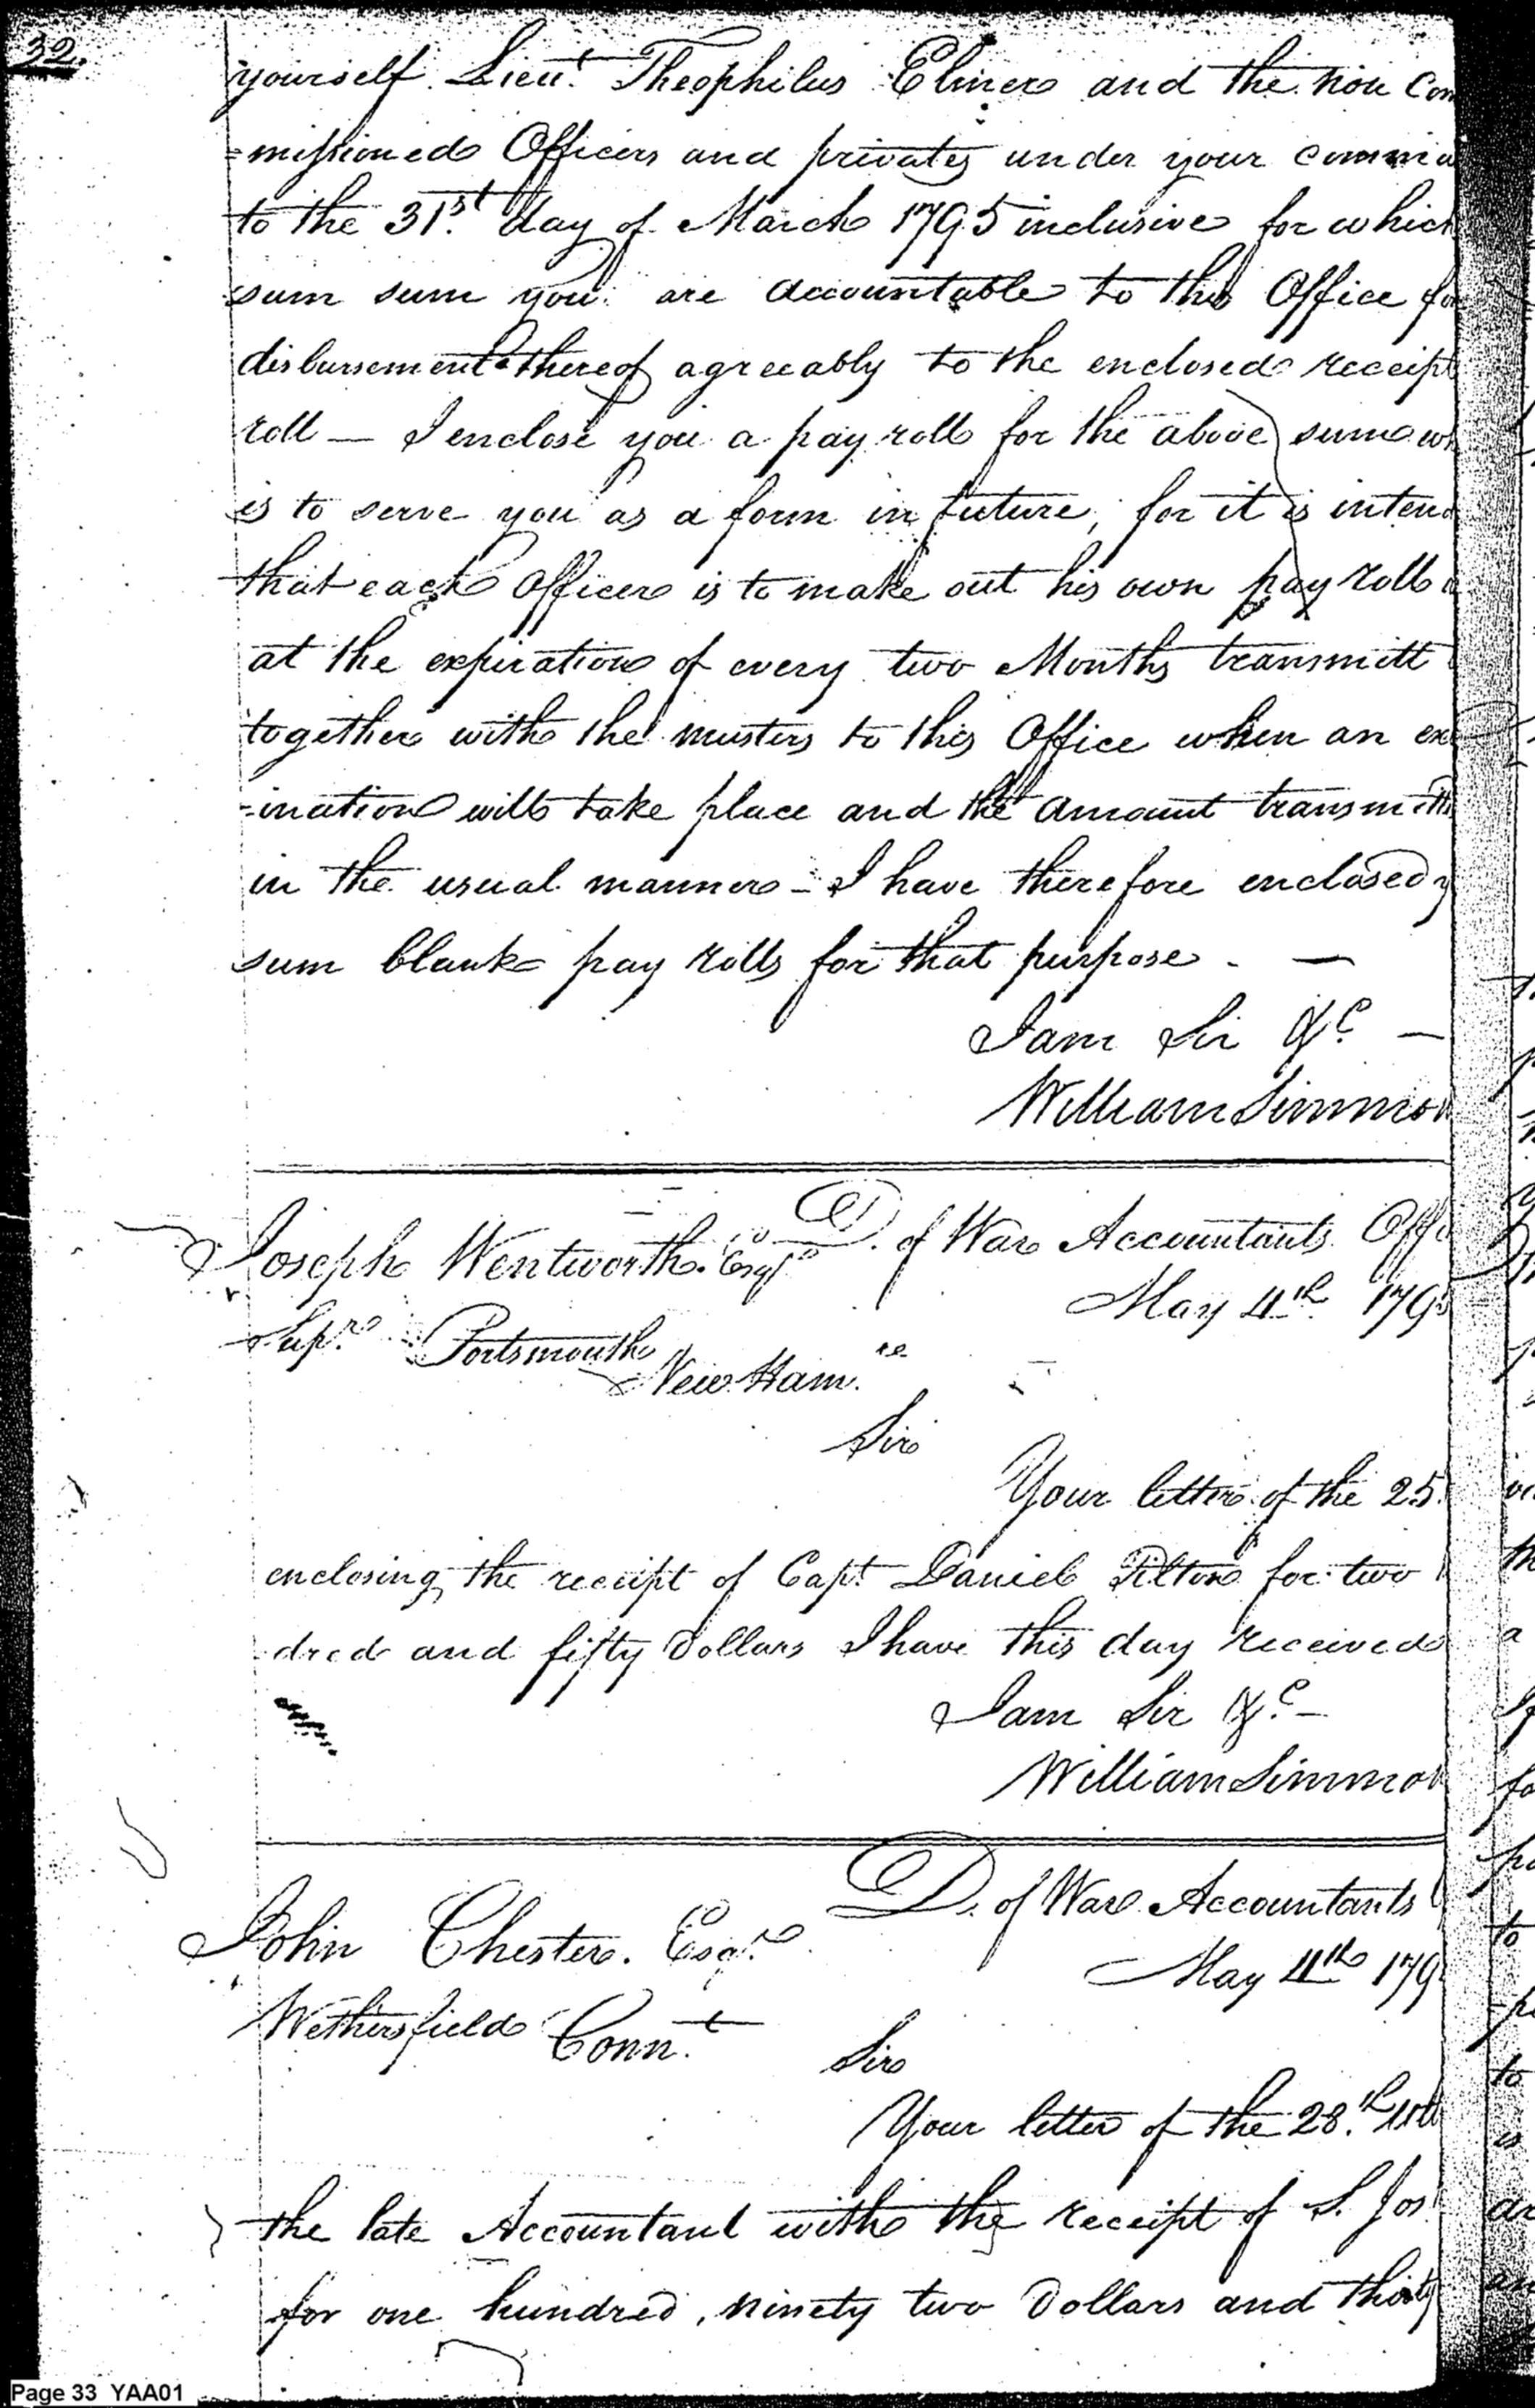 32.
yourself Lieu.t Theophilus Elmer and the non Com
=missioned Officers and privates under your comma
to the 31.st day of March 1795 inclusive for which
sum sum you are accountable to this Office fo
disbursement thereof agreeably to the enclosed receipt
roll — I enclose you a pay roll for the above sum wh
is to serve you as a form in future, for it is inten
that each Officer is to make out his own pay roll
at the expiration of every two Months transmitt
together with the musters to this Office when an ex
-ination will take place and the amount transmitt
in the usual manner - I have therefore enclosed y
sum blank pay rolls for that purpose. —
I am Sir &.c —
William Simmon
Joseph Wentworth. Esq.r D. of War Accountants Offi
May 4.th 179
Sup.r Portsmouth
New Ham.re
Sir
Your letter of the 25
enclosing the receipt of Cap.t Daniel Tilton for two
dred and fifty Dollars I have this day received
I am Sir &.c —
William Simmon
D. of War Accountants
John Chester. Esq.r
May 4th 179
Wethersfield Conn.t
Sir
Your letter of the 28.th ult
the late Accountant with the receipt of S. Jos
for one hundred, ninety two Dollars and thirty
Page 33 YAA01